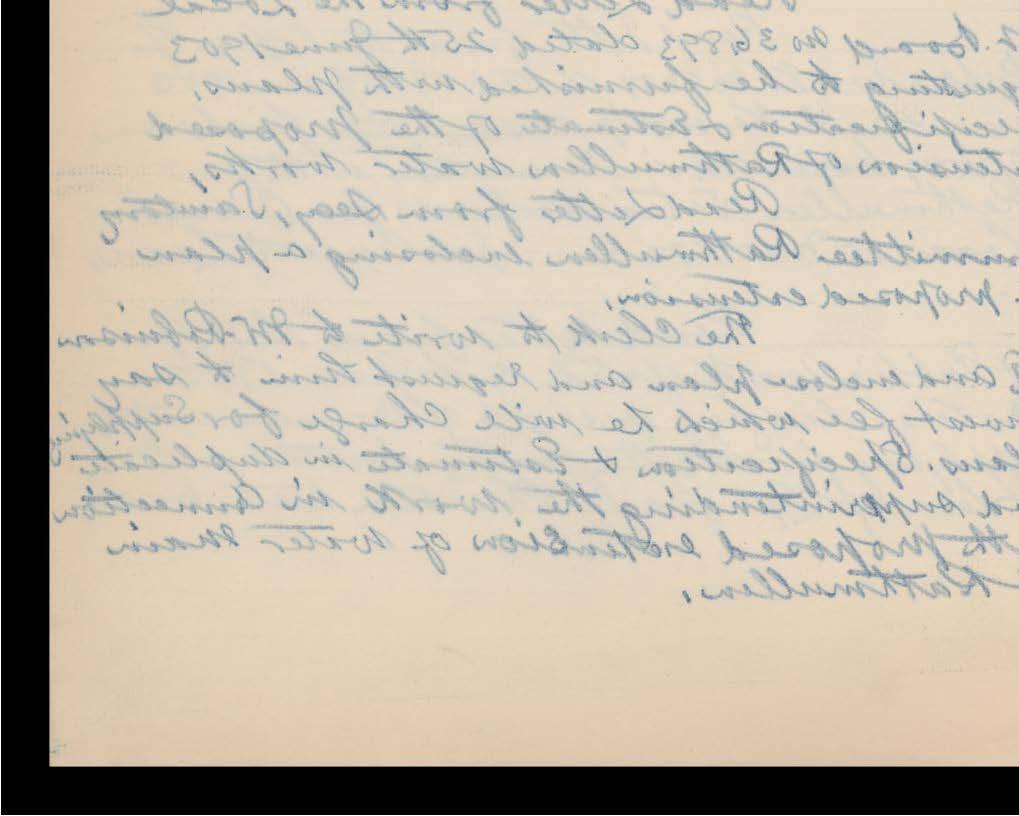 Read Letter from the Local
. Board No 36,893 dated 25th June 1903
questing to be furnished with plans,
ecification & Estimate of the proposed
tension of Rathmullen Water Works,
Read Letter from Secy, Sanitary
mmittee Rathmullen enclosing a plan
proposed extension.
The Clerk to write to Mr Robinson
and enclose plan and request him to say
owest fee which he will charge for Supplying
lans. Specification & Estimate in duplicate
d superintending the work in Connection
th proposed extension of water main
Rathmullen.